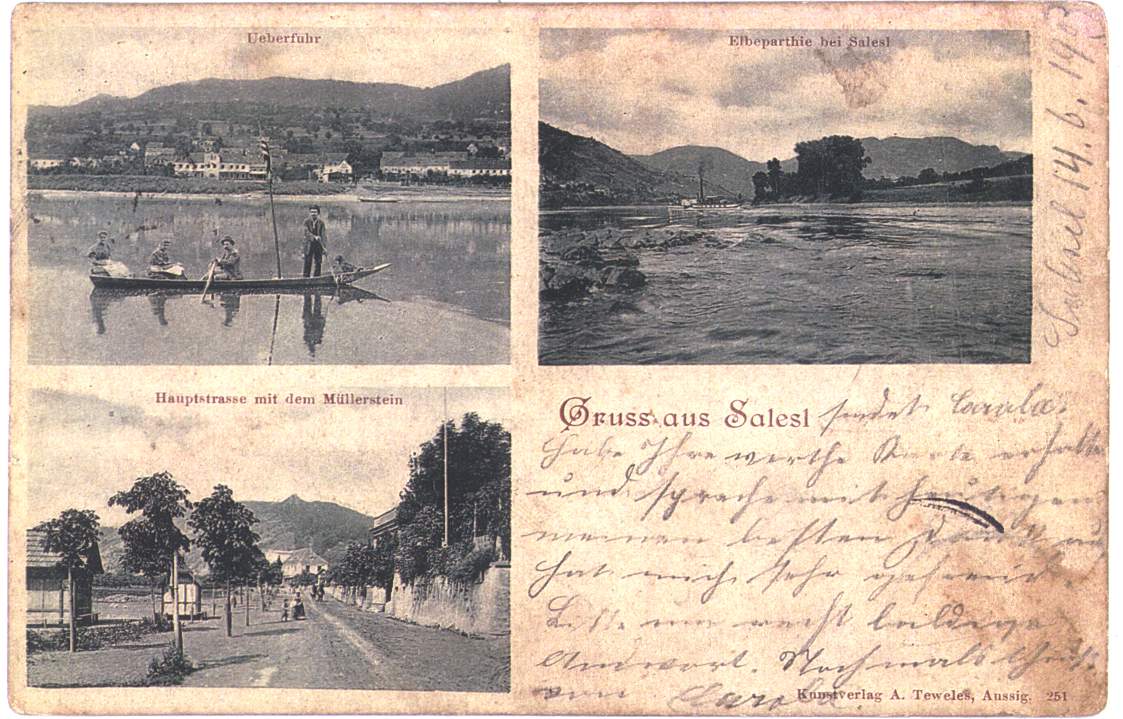 Ueberfuhr
Elbeparthie bei Salesl
Salesel 14.6.1903
Hauptstrasse mit dem Müllerstein
Gruss aus Salesl sendet Carola.
Habe Ihre werthe Karte erhalten
und spreche mit heutigen
meinen besten Dank aus
hat mich sehr gefreut.
Bitte um recht baldige
Antwort. Nochmals Gruß
von Carola.
Kunstverlag A. Teweles, Aussig. 251